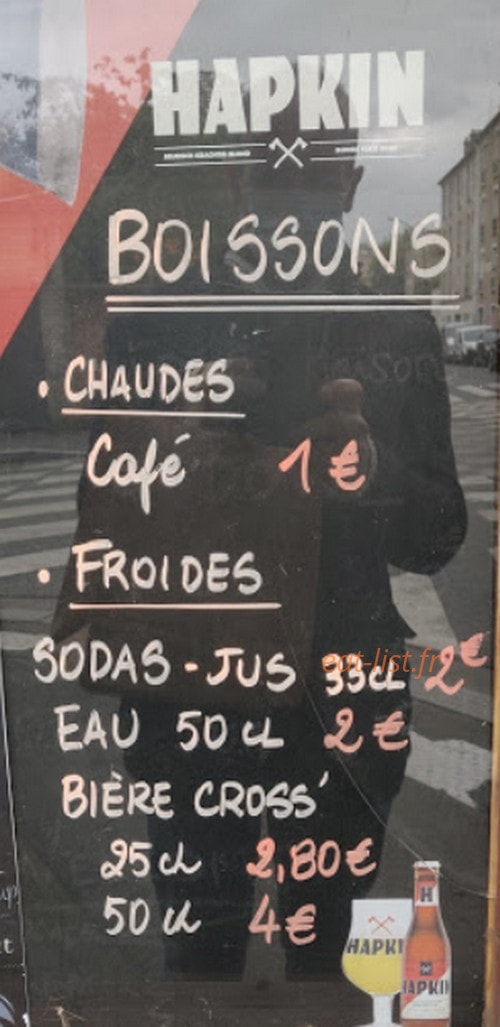 HAPKIN
BOISSONS
• CHAUDES
Café 1 €
• FROIDES
SODAS - JUS 33CL 2€
eat-list.fr
EAU 50 CL 2 €
BIÈRE CROSS'
25 cl 2,80 €
50 cl 4 €
H
HAPKI
HAPKIN